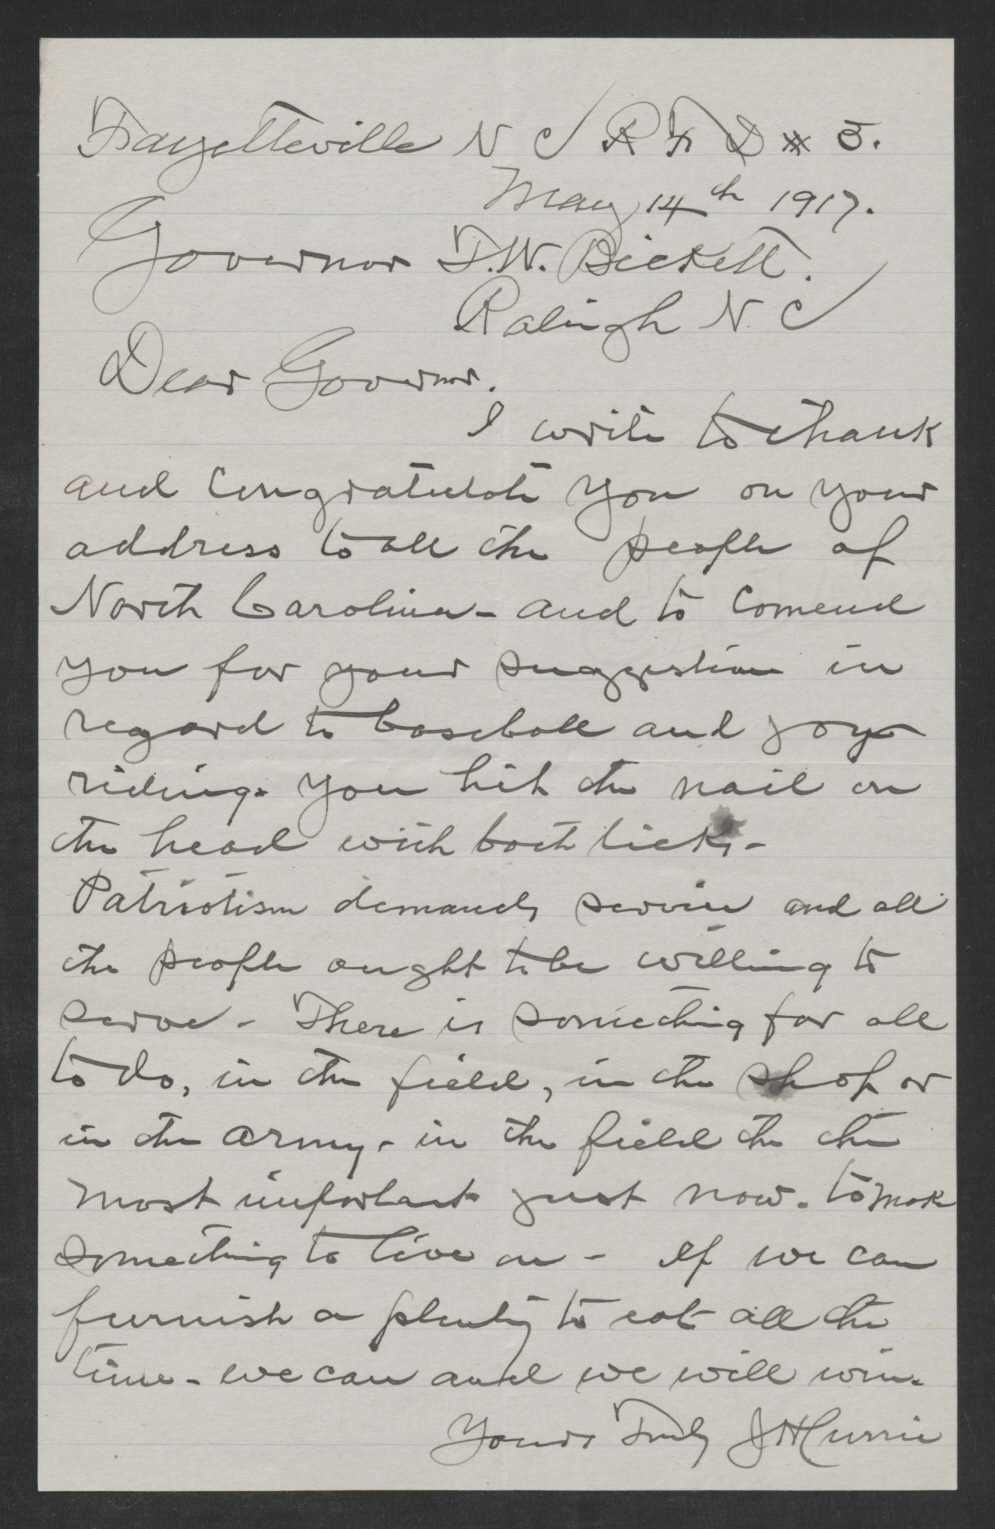 Fayetteville N C R F D # 5.
May 14th 1917.
Governor T.W. Bickett.
Raleigh N. C
Dear Governor.
I write to thank
and congratulate you on your
address to all the people of
North Carolina - and to comend
you for your suggestion in
regard to baseball and joy
riding. You hit the nail on
the head with both licks -
Patriotism demands service and all
the people ought to be willing to
serve - There is something for all
to do, in the field, in the shop or
in the army - in the field the the
most important just now. to make
something to live on - If we can
furnish a plenty to eat all the
time - we can and we will win.
Yours Truly J H Currie